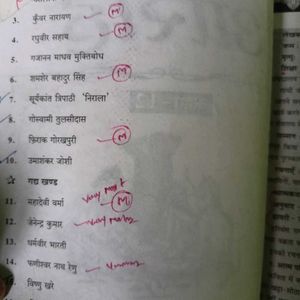 3. कुँवर नारायण M
4. रघुवीर सहाय M
5. गजानन माधव मुक्तिबोध
6. शमशेर बहादुर सिंह M
7. सूर्यकांत त्रिपाठी 'निराला'
8. गोस्वामी तुलसीदास
9. फ़िराक गोरखपुरी M
10. उमाशंकर जोशी
गद्य खण्ड
11. महादेवी वर्मा M
12. जैनेन्द्र कुमार
13. धर्मवीर भारती
14. फणीश्वर नाथ रेणु
विष्णु खरे